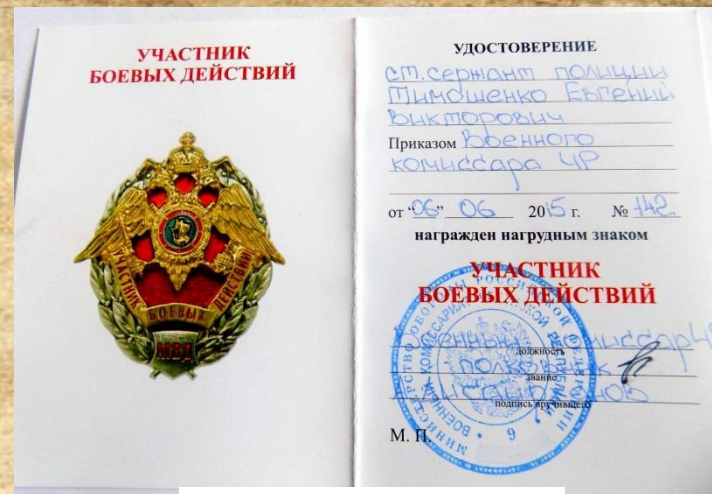 УЧАСТНИК
БОЕВЫХ ДЕЙСТВИЙ
УЧАСТНИК БОЕВЫХ ДЕЙСТВИЙ
МВД
УДОСТОВЕРЕНИЕ
ст. сержант полиции
Тимошенко Евгений
Викторович
Приказом Военного
комиссара ЧР
от “06” 06 2015 г. № 142
награжден нагрудным знаком
УЧАСТНИК
БОЕВЫХ ДЕЙСТВИЙ
Военный комиссар ЧР
должность
полковник
звание
подпись вручившего
М. П.
МИНИСТЕРСТВО ОБОРОНЫ РОССИЙСКОЙ ФЕДЕРАЦИИ
ВОЕННЫЙ КОМИССАРИАТ РЕСПУБЛИКИ
9